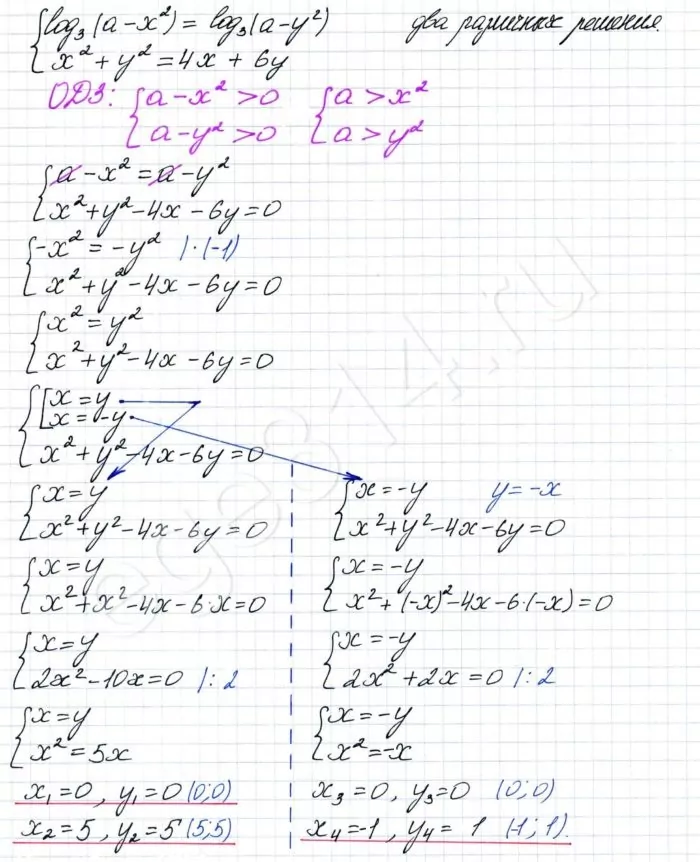 {log₃(a-x²) = log₃(a-y²) два различных решения.
{x²+y²=4x+6y
ОДЗ: {a-x²>0 {a>x²
{a-y²>0 {a>y²
{a-x²=a-y²
{x²+y²-4x-6y=0
{-x²=-y² |·(-1)
{x²+y²-4x-6y=0
{x²=y²
{x²+y²-4x-6y=0
{[x=y
[x=-y
x²+y²-4x-6y=0
{x=y
{x²+y²-4x-6y=0
{x=y
{x²+x²-4x-6·x=0
{x=y
{2x²-10x=0 |:2
{x=y
{x²=5x
x₁=0, y₁=0 (0;0)
x₂=5, y₂=5 (5;5)
{x=-y y=-x
{x²+y²-4x-6y=0
{x=-y
{x²+(-x)²-4x-6·(-x)=0
{x=-y
{2x²+2x=0 |:2
{x=-y
{x²=-x
x₃=0, y₃=0 (0;0)
x₄=-1, y₄=1 (-1;1).
ege314.ru